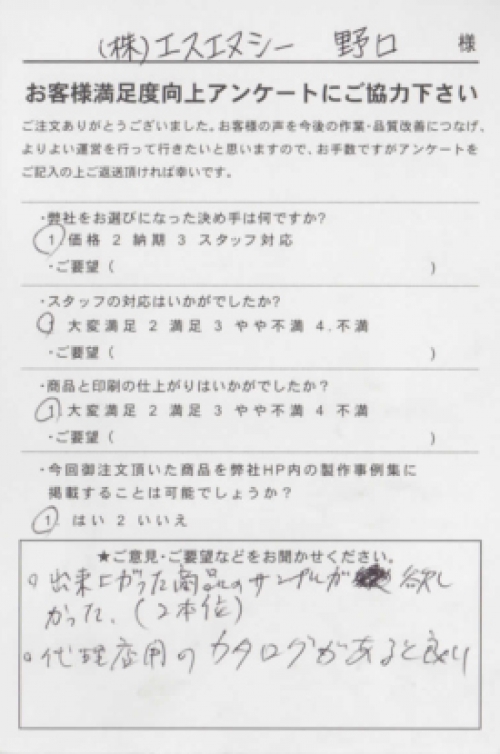 (株)エスエヌシー 野口 様
お客様満足度向上アンケートにご協力下さい
ご注文ありがとうございました。お客様の声を今後の作業・品質改善につなげ、
よりよい運営を行って行きたいと思いますので、お手数ですがアンケートを
ご記入の上ご返送頂ければ幸いです。
・弊社をお選びになった決め手は何ですか?
1 価格 2 納期 3 スタッフ対応
・ご要望 ( )
・スタッフの対応はいかがでしたか?
1 大変満足 2 満足 3 やや不満 4.不満
・ご要望 ( )
・商品と印刷の仕上がりはいかがでしたか?
1 大変満足 2 満足 3 やや不満 4 不満
・ご要望 ( )
・今回御注文頂いた商品を弊社HP内の製作事例集に
掲載することは可能でしょうか?
1 はい 2 いいえ
★ご意見・ご要望などをお聞かせください。
○出来上がった商品のサンプルが欲し
かった。(2本位)
○代理店用のカタログがあると良い